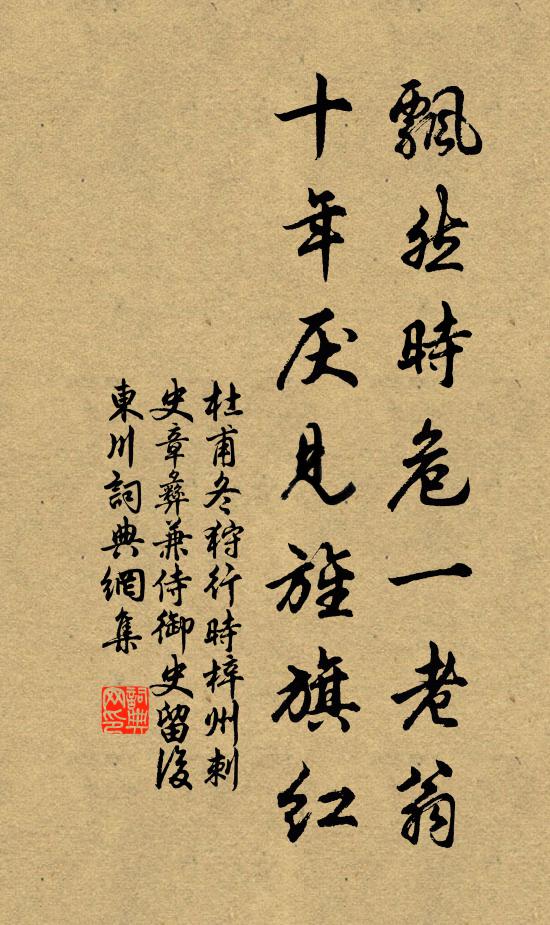 飄然時危一老翁
十年厌見旌旗紅
杜甫冬狩行時梓州刺
史章彝兼侍御史留後
東川詞典網集
詞典
网印